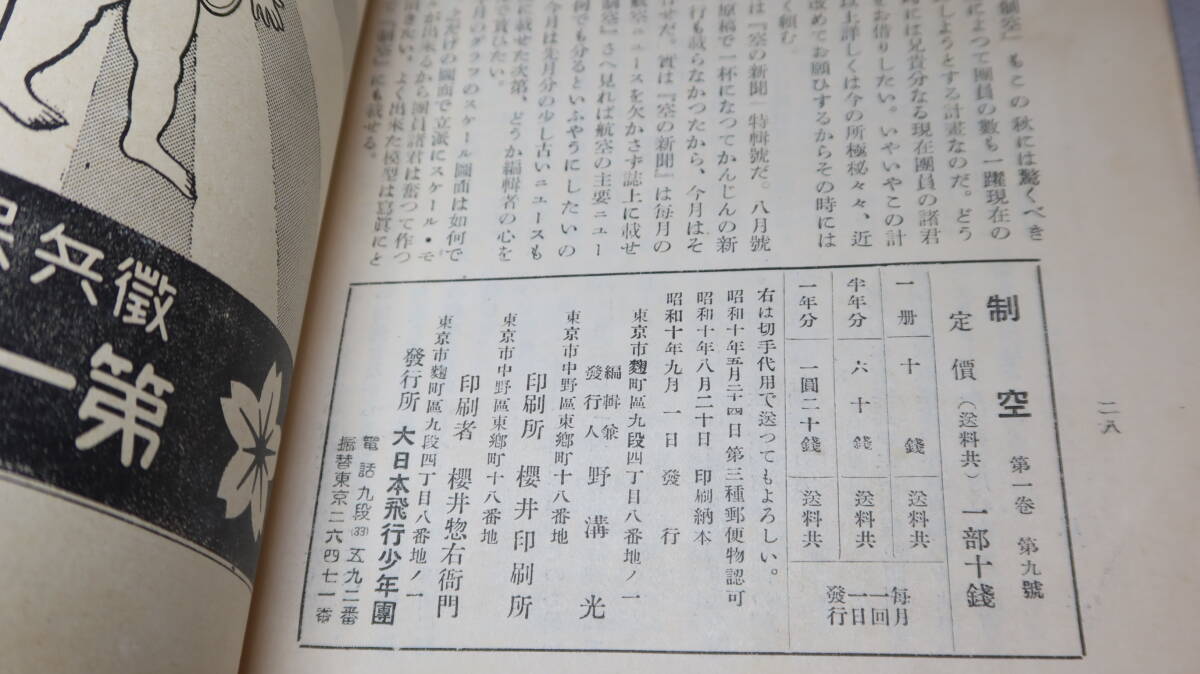 制空』もこの秋には驚くべき
によつて團員の數も一躍現在の
しようとする計畫なのだ。どう
時には兄貴分なる現在團員の諸君
をお借りしたい。いやいやこの計
以上詳しくは今の所極秘々々、近
改めてお願ひするからその時には
く頼む。
は『空の新聞』特輯號だ。八月號
原稿で一杯になつてかんじんの新
行も載らなかつたから、今月はそ
せだ。實は『空の新聞』は每月の
航空ニュースを欠かさず誌上に載せ
制空』さへ見れば航空の主要ニュー
何でも分るといふやうにしたいの
今月は先月分の少し古いニュースも
に載せた次第、どうか編輯者の心を
て貰ひたい。
月のグラフのスケール圖面は如何で
上だけの圖面で立派にスケール・モ
が出來るから團員諸君は奮つて作つ
聞きたい。よく出來た模型は寫眞にと
『制空』にも載せる。
二八
制空 第一卷 第九號
定價(送料共)一部十錢
一册 十錢 送料共
半年分 六十錢 送料共
一年分 一圓二十錢 送料共
每月一回一日發行
右は切手代用で送つてもよろしい。
昭和十年五月二十四日第三種郵便物認可
昭和十年八月二十日印刷納本
昭和十年九月一日發行
東京市麴町區九段四丁目八番地ノ一
編輯兼發行人 野溝光
東京市中野區東鄕町十八番地
印刷所 櫻井印刷所
東京市中野區東鄕町十八番地
印刷者 櫻井惣右衞門
東京市麴町區九段四丁目八番地ノ一
發行所 大日本飛行少年團
電話九段(33)五九二番
振替東京二六四七一番
徵兵保
第一